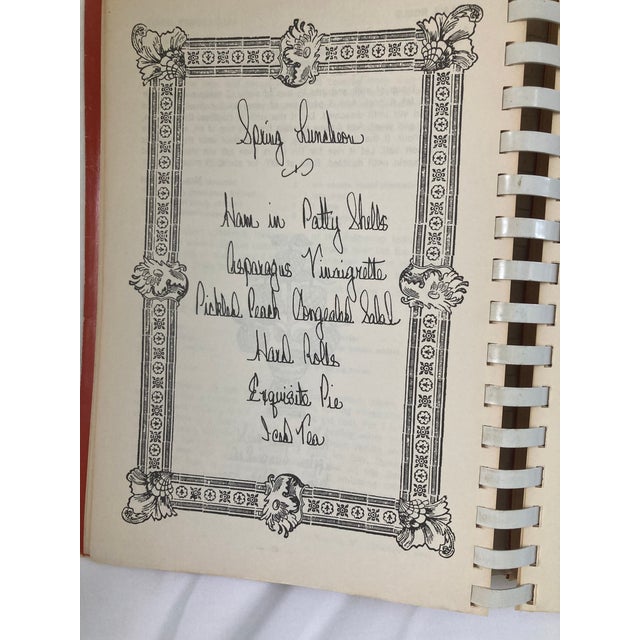 Spring Luncheon
Ham in Patty Shells
Asparagus Vinaigrette
Pickled Peach Congealed Salad
Hard Rolls
Exquisite Pie
Iced Tea